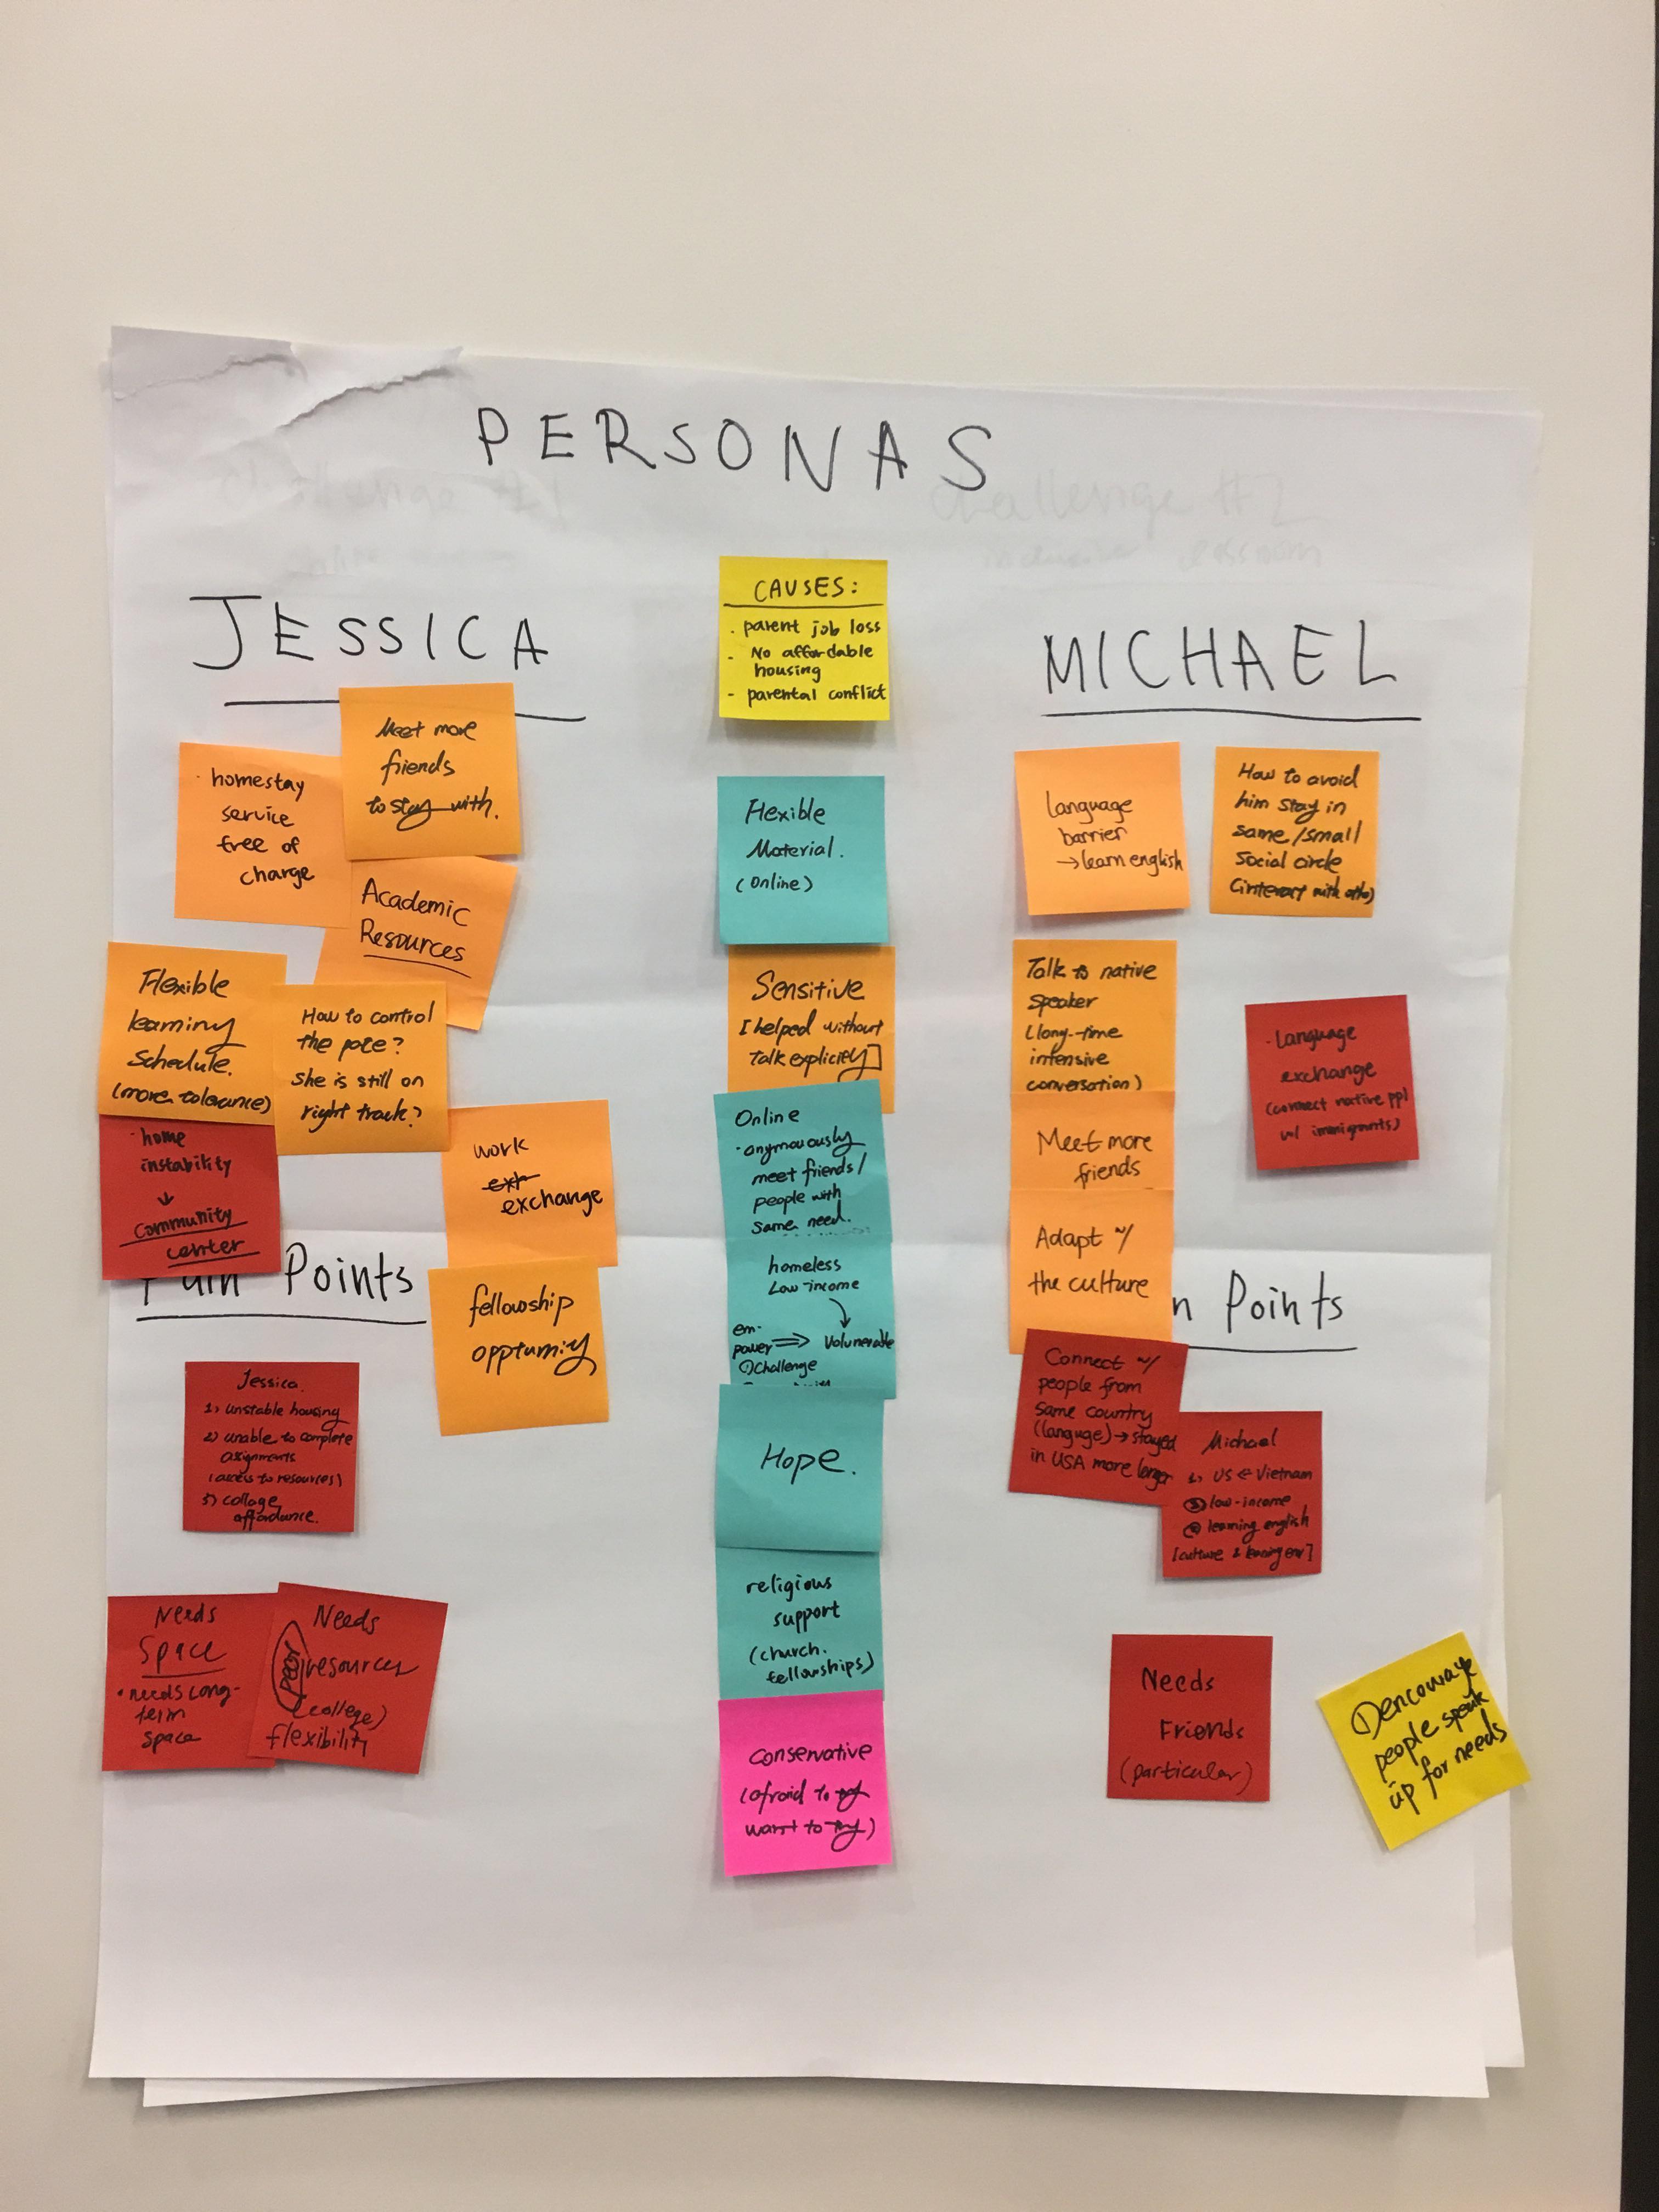 PERSONAS
JESSICA
Meet more
friends
to stay with.
· homestay
service
free of
charge
Academic
Resources
Flexible
learning
Schedule.
(more tolerance)
How to control
the pace?
she is still on
right track?
· home
instability
↓
community
center
work
exchange
fellowship
opptumity
Points
Jessica.
1) unstable housing
2) unable to complete
assignments
(access to resources)
3) collage
affordance.
Needs
Space
• needs long-
term
space
Needs
peer resources
(college)
flexibility
CAUSES:
- parent job loss
- No affordable
housing
- parental conflict
Flexible
Material.
(Online)
Sensitive
[helped without
talk explicitly]
Online
· anymously
meet friends/
people with
same need.
homeless
Low-income
em-
power ⇒ Volunerable
① Challenge
Hope.
religious
support
(church.
fellowships)
Conservative
(afraid to
want to try)
MICHAEL
language
barrier
→ learn english
How to avoid
him stay in
same/small
Social circle
Talk to native
speaker
(long-time
intensive
conversation)
· Language
exchange
(connect native ppl
w/ immigrants)
Meet more
friends
Adapt w/
the culture
n Points
Connect w/
people from
same country
(languge) → stayed
in USA more longer
Michael
1) US ← Vietnam
low-income
learning english
Needs
Friends
(particular)
Dencourage
people speak
up for needs